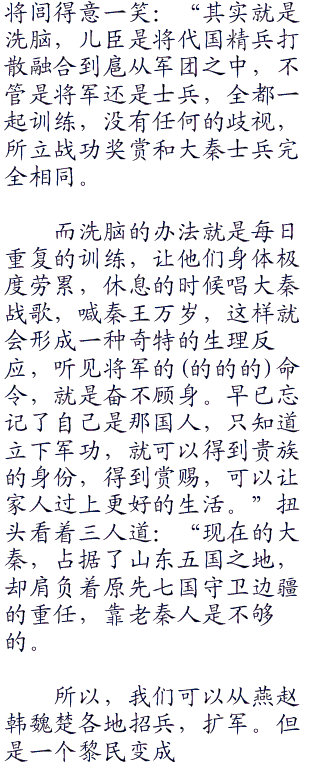 将闾得意一笑：“其实就是
洗脑，儿臣是将代国精兵打
散融合到扈从军团之中，不
管是将军还是士兵，全都一
起训练，没有任何的歧视，
所立战功奖赏和大秦士兵完
全相同。
而洗脑的办法就是每日
重复的训练，让他们身体极
度劳累，休息的时候唱大秦
战歌，喊秦王万岁，这样就
会形成一种奇特的生理反
应，听见将军的(的的的)命
令，就是奋不顾身。早已忘
记了自己是那国人，只知道
立下军功，就可以得到贵族
的身份，得到赏赐，可以让
家人过上更好的生活。”扭
头看着三人道：“现在的大
秦，占据了山东五国之地，
却肩负着原先七国守卫边疆
的重任，靠老秦人是不够
的。
所以，我们可以从燕赵
韩魏楚各地招兵，扩军。但
是一个黎民变成